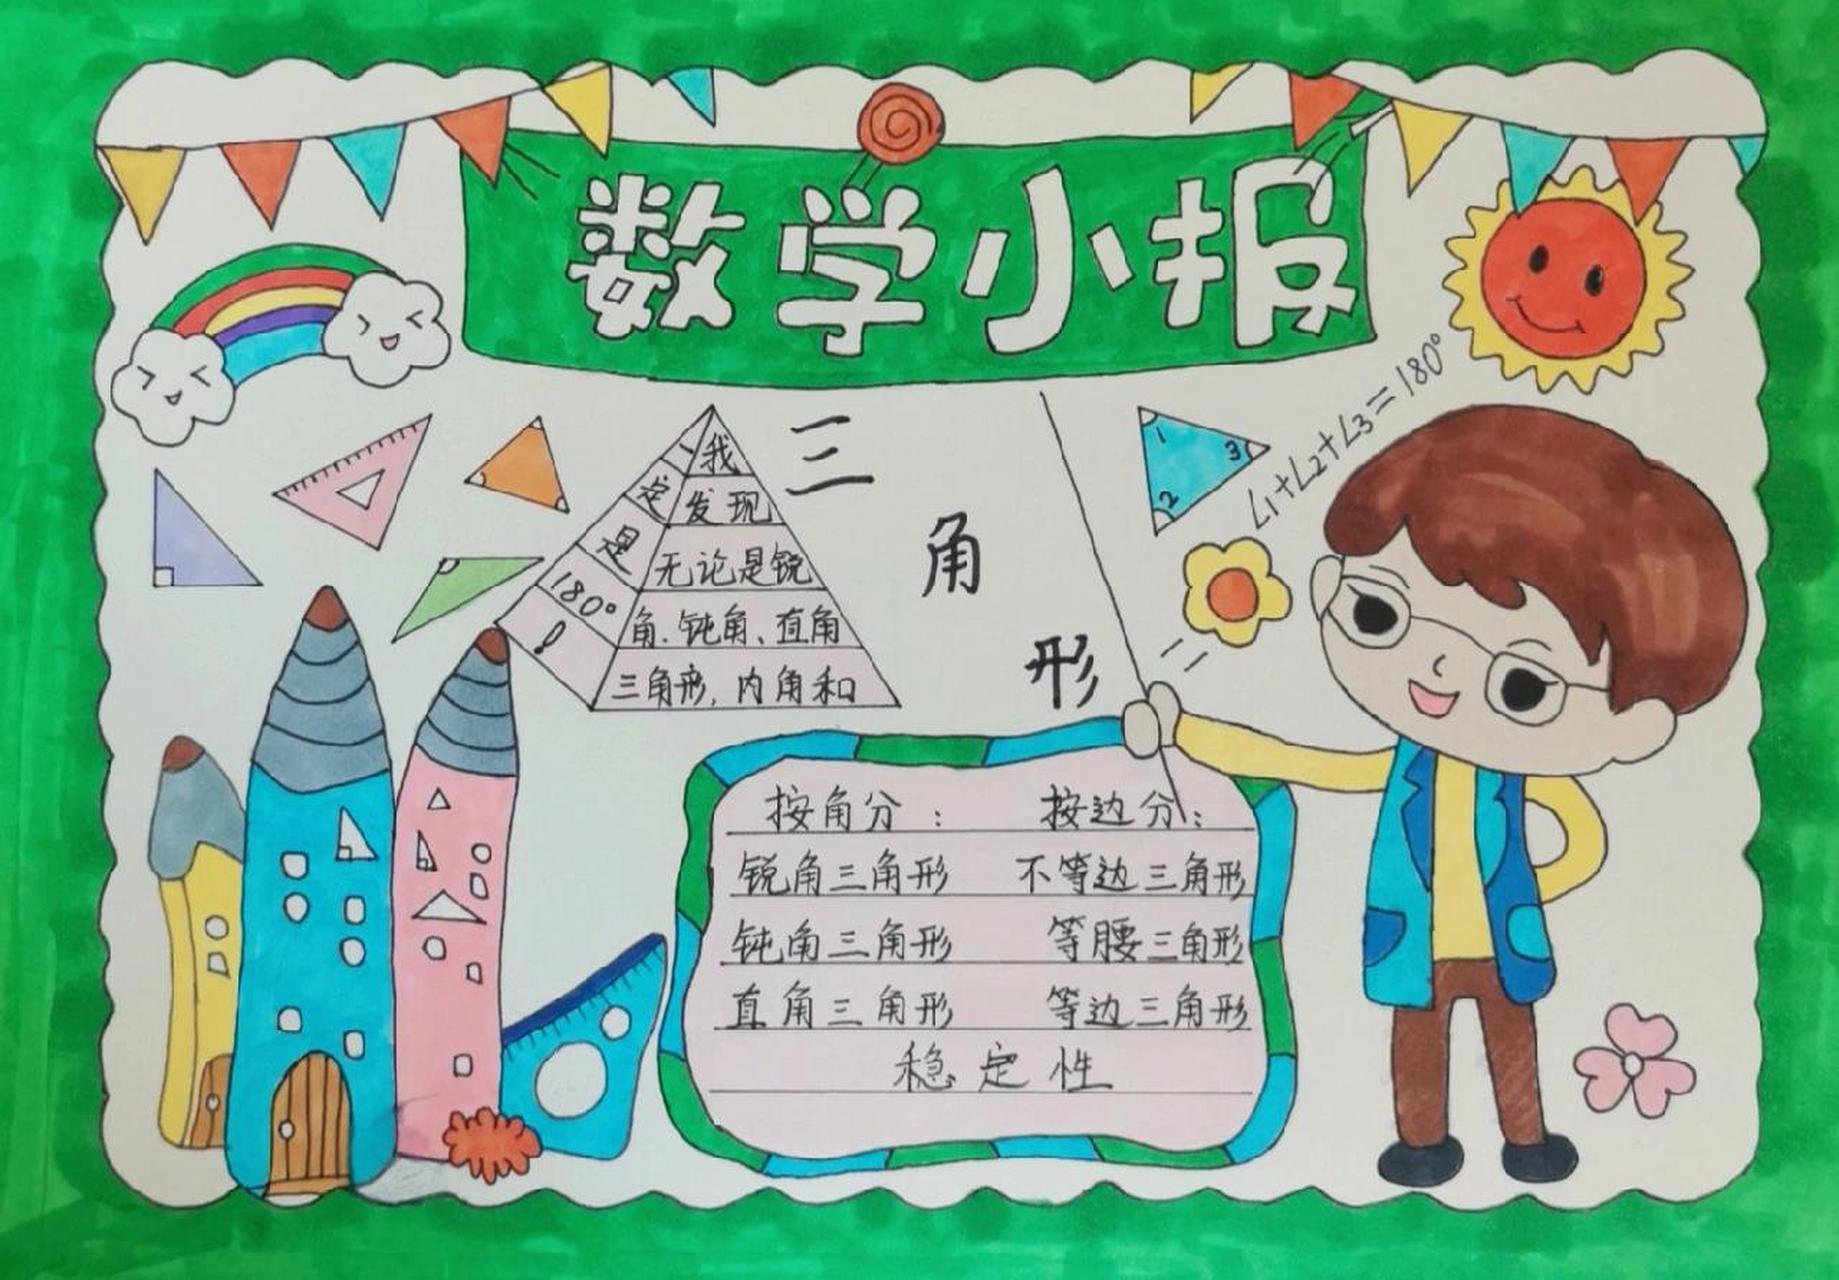 数学小报
三角形
我
发现
无论是锐
角、钝角、直角
三角形，内角和
一
定
是
180°
！
1
2
3
∠1+∠2+∠3=180°
按角分：
锐角三角形
钝角三角形
直角三角形
按边分：
不等边三角形
等腰三角形
等边三角形
稳定性